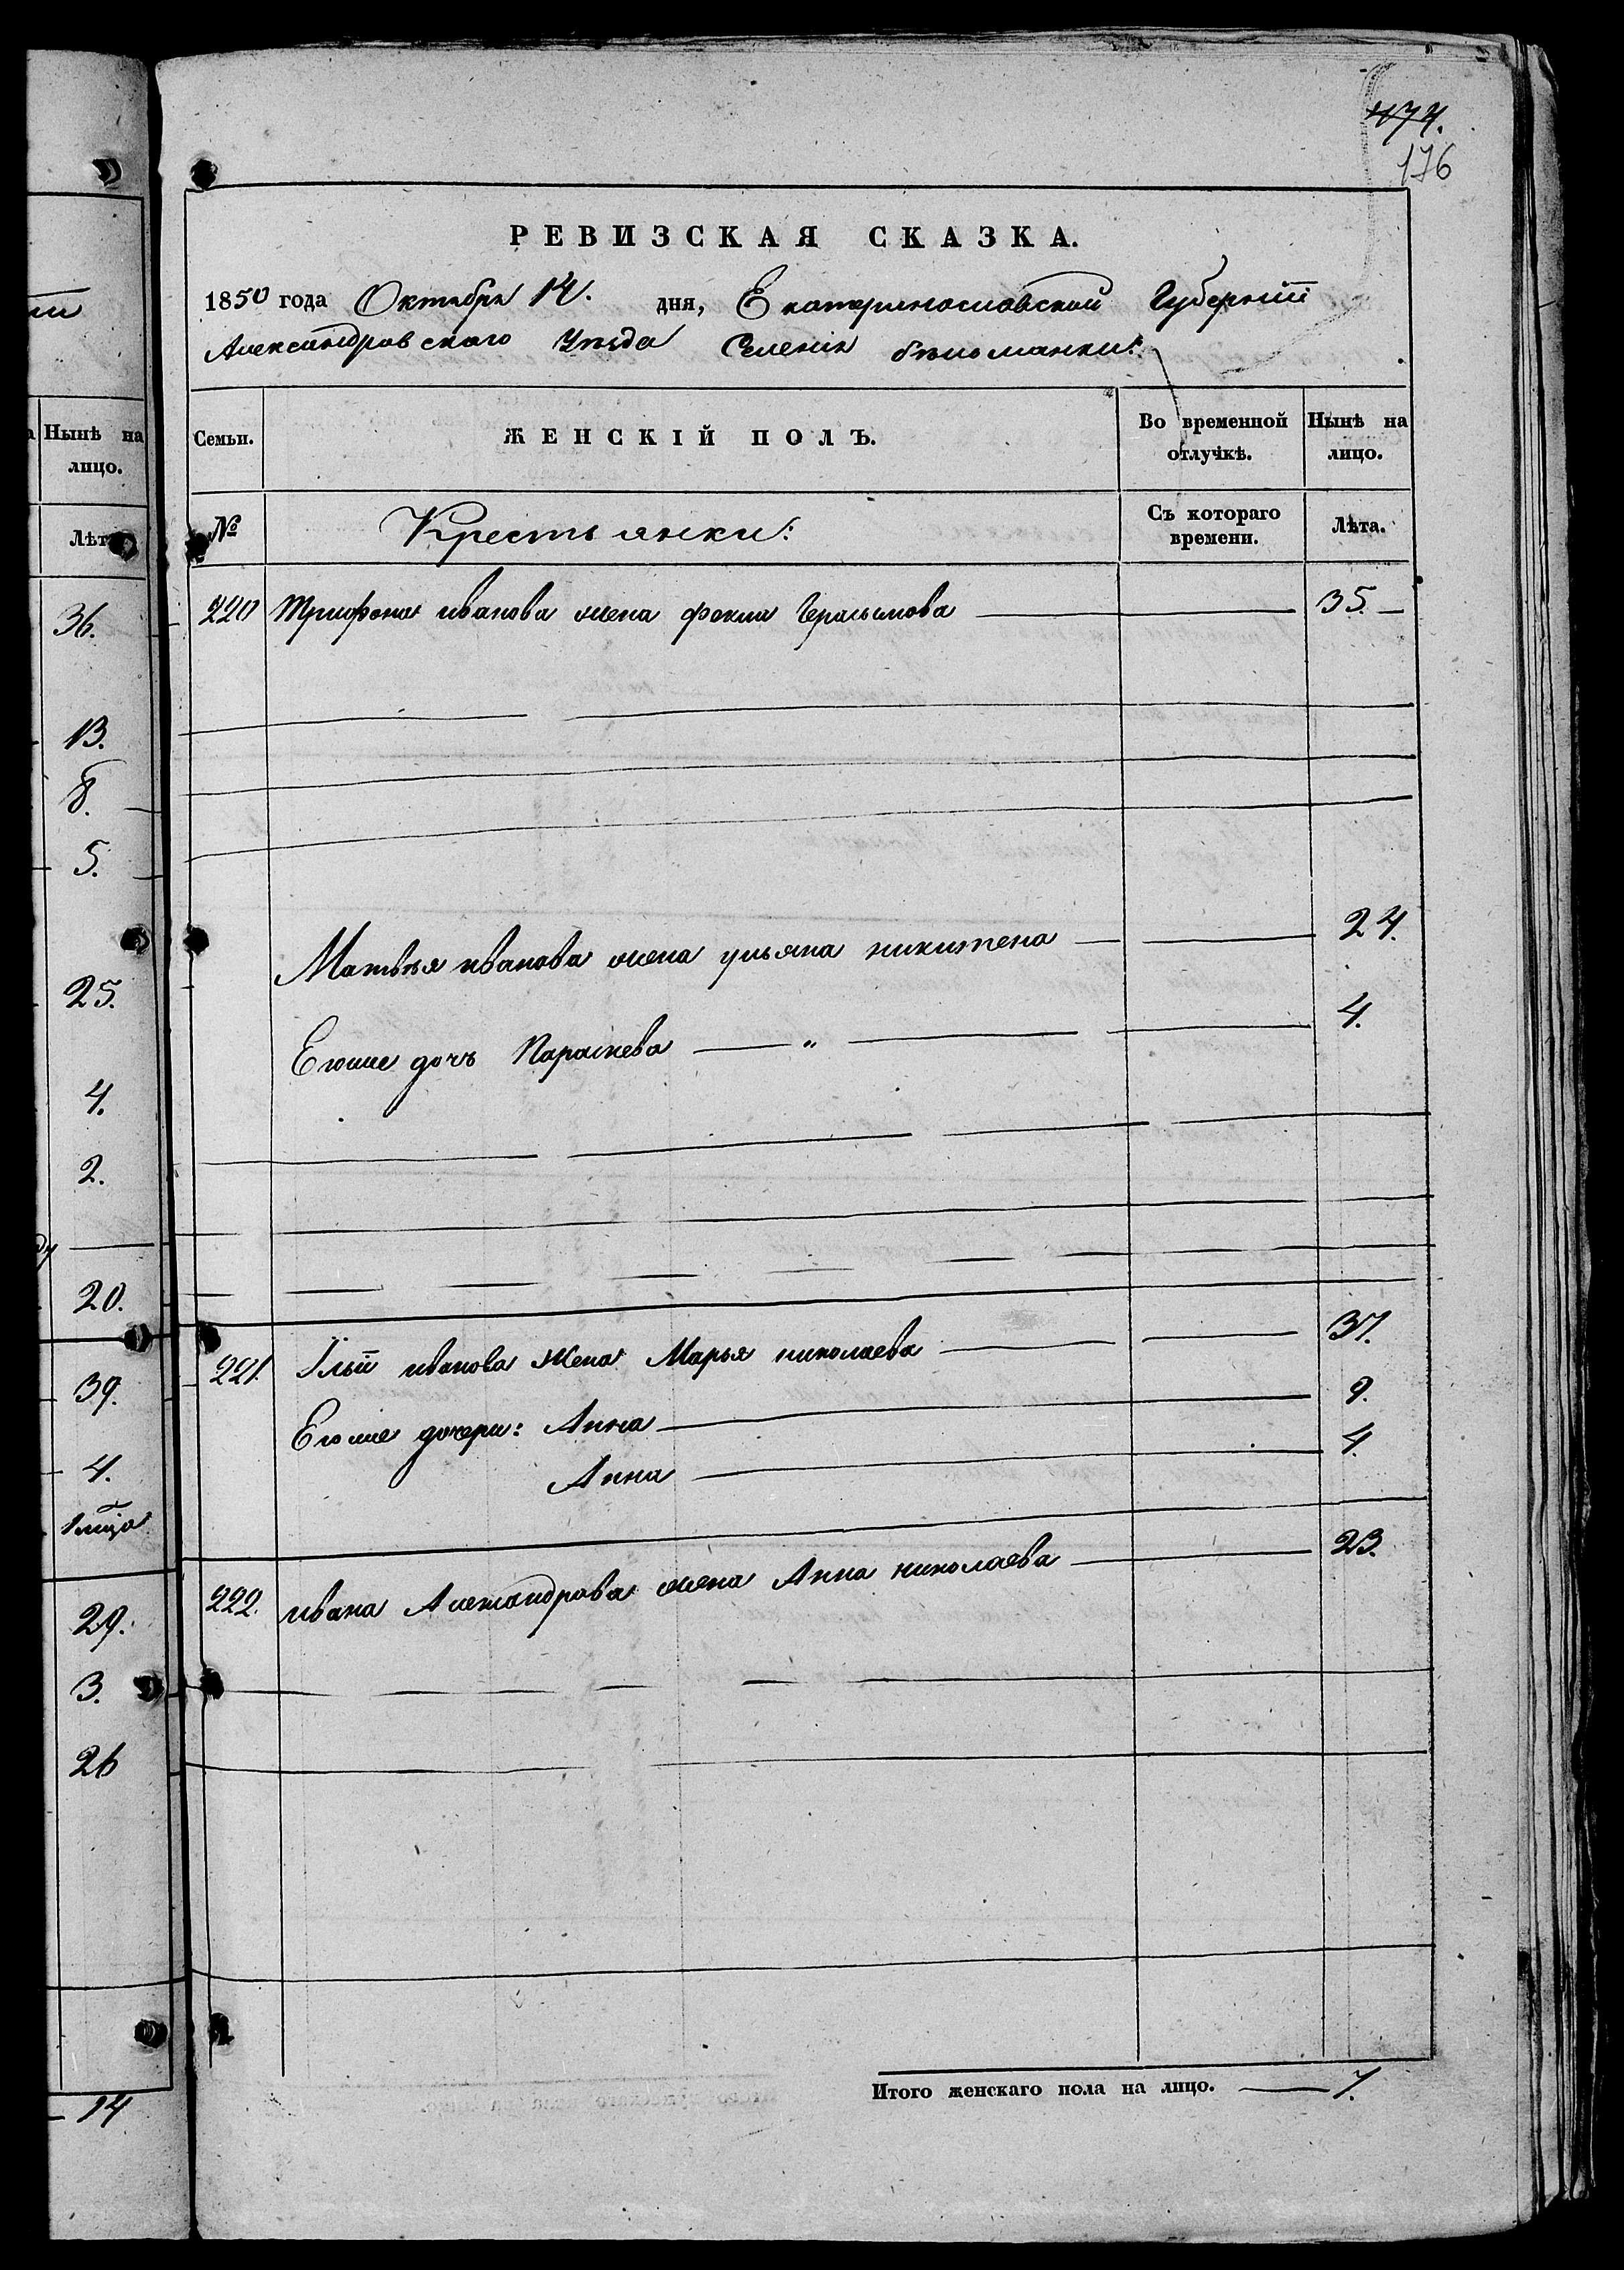 174.
176
РЕВИЗСКАЯ СКАЗКА.
1850 года Октября 14. дня, Екатеринославской Губерніи
Александровского Уѣзда Селенія бѣломанки:
Семьи. ЖЕНСКІЙ ПОЛЪ. Во временной отлучкѣ. Нынѣ на лицо.
№ Крестьянки: Съ котораго времени. Лѣта.
220 Трифона иванова жена фекла Герасимова 35.
Матвѣя иванова жена ульяна никитена 24.
Егоже дочь Параскева " 4.
221. Ільи иванова Жена Марья николаева 37.
Егоже дочери: Анна 9.
Анна 4.
222. ивана Александрова жена Анна николаева 23.
Итого женскаго пола на лицо. 7.
Нынѣ на
лицо.
Лѣта
36.
13.
8.
5.
25.
4.
2.
20.
39.
4.
29.
3.
26
14